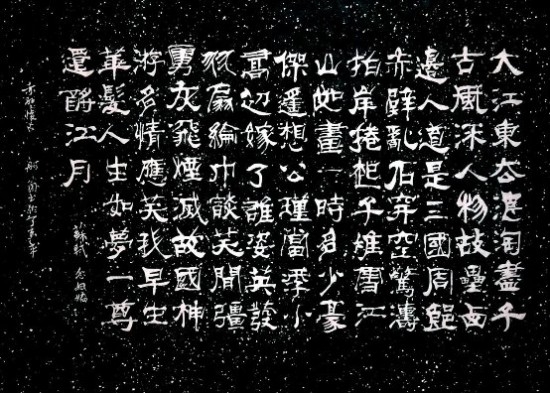 大江東去浪淘盡千
古風流人物故壘西
邊人道是三國周郎
赤壁亂石穿空驚濤
拍岸捲起千堆雪江
山如畫一時多少豪
傑遙想公瑾當年小
喬初嫁了雄姿英發
羽扇綸巾談笑間彊
虜灰飛煙滅故國神
游多情應笑我早生
華髮人生如夢一尊
還酹江月
蘇軾 念奴嬌
赤壁懷古